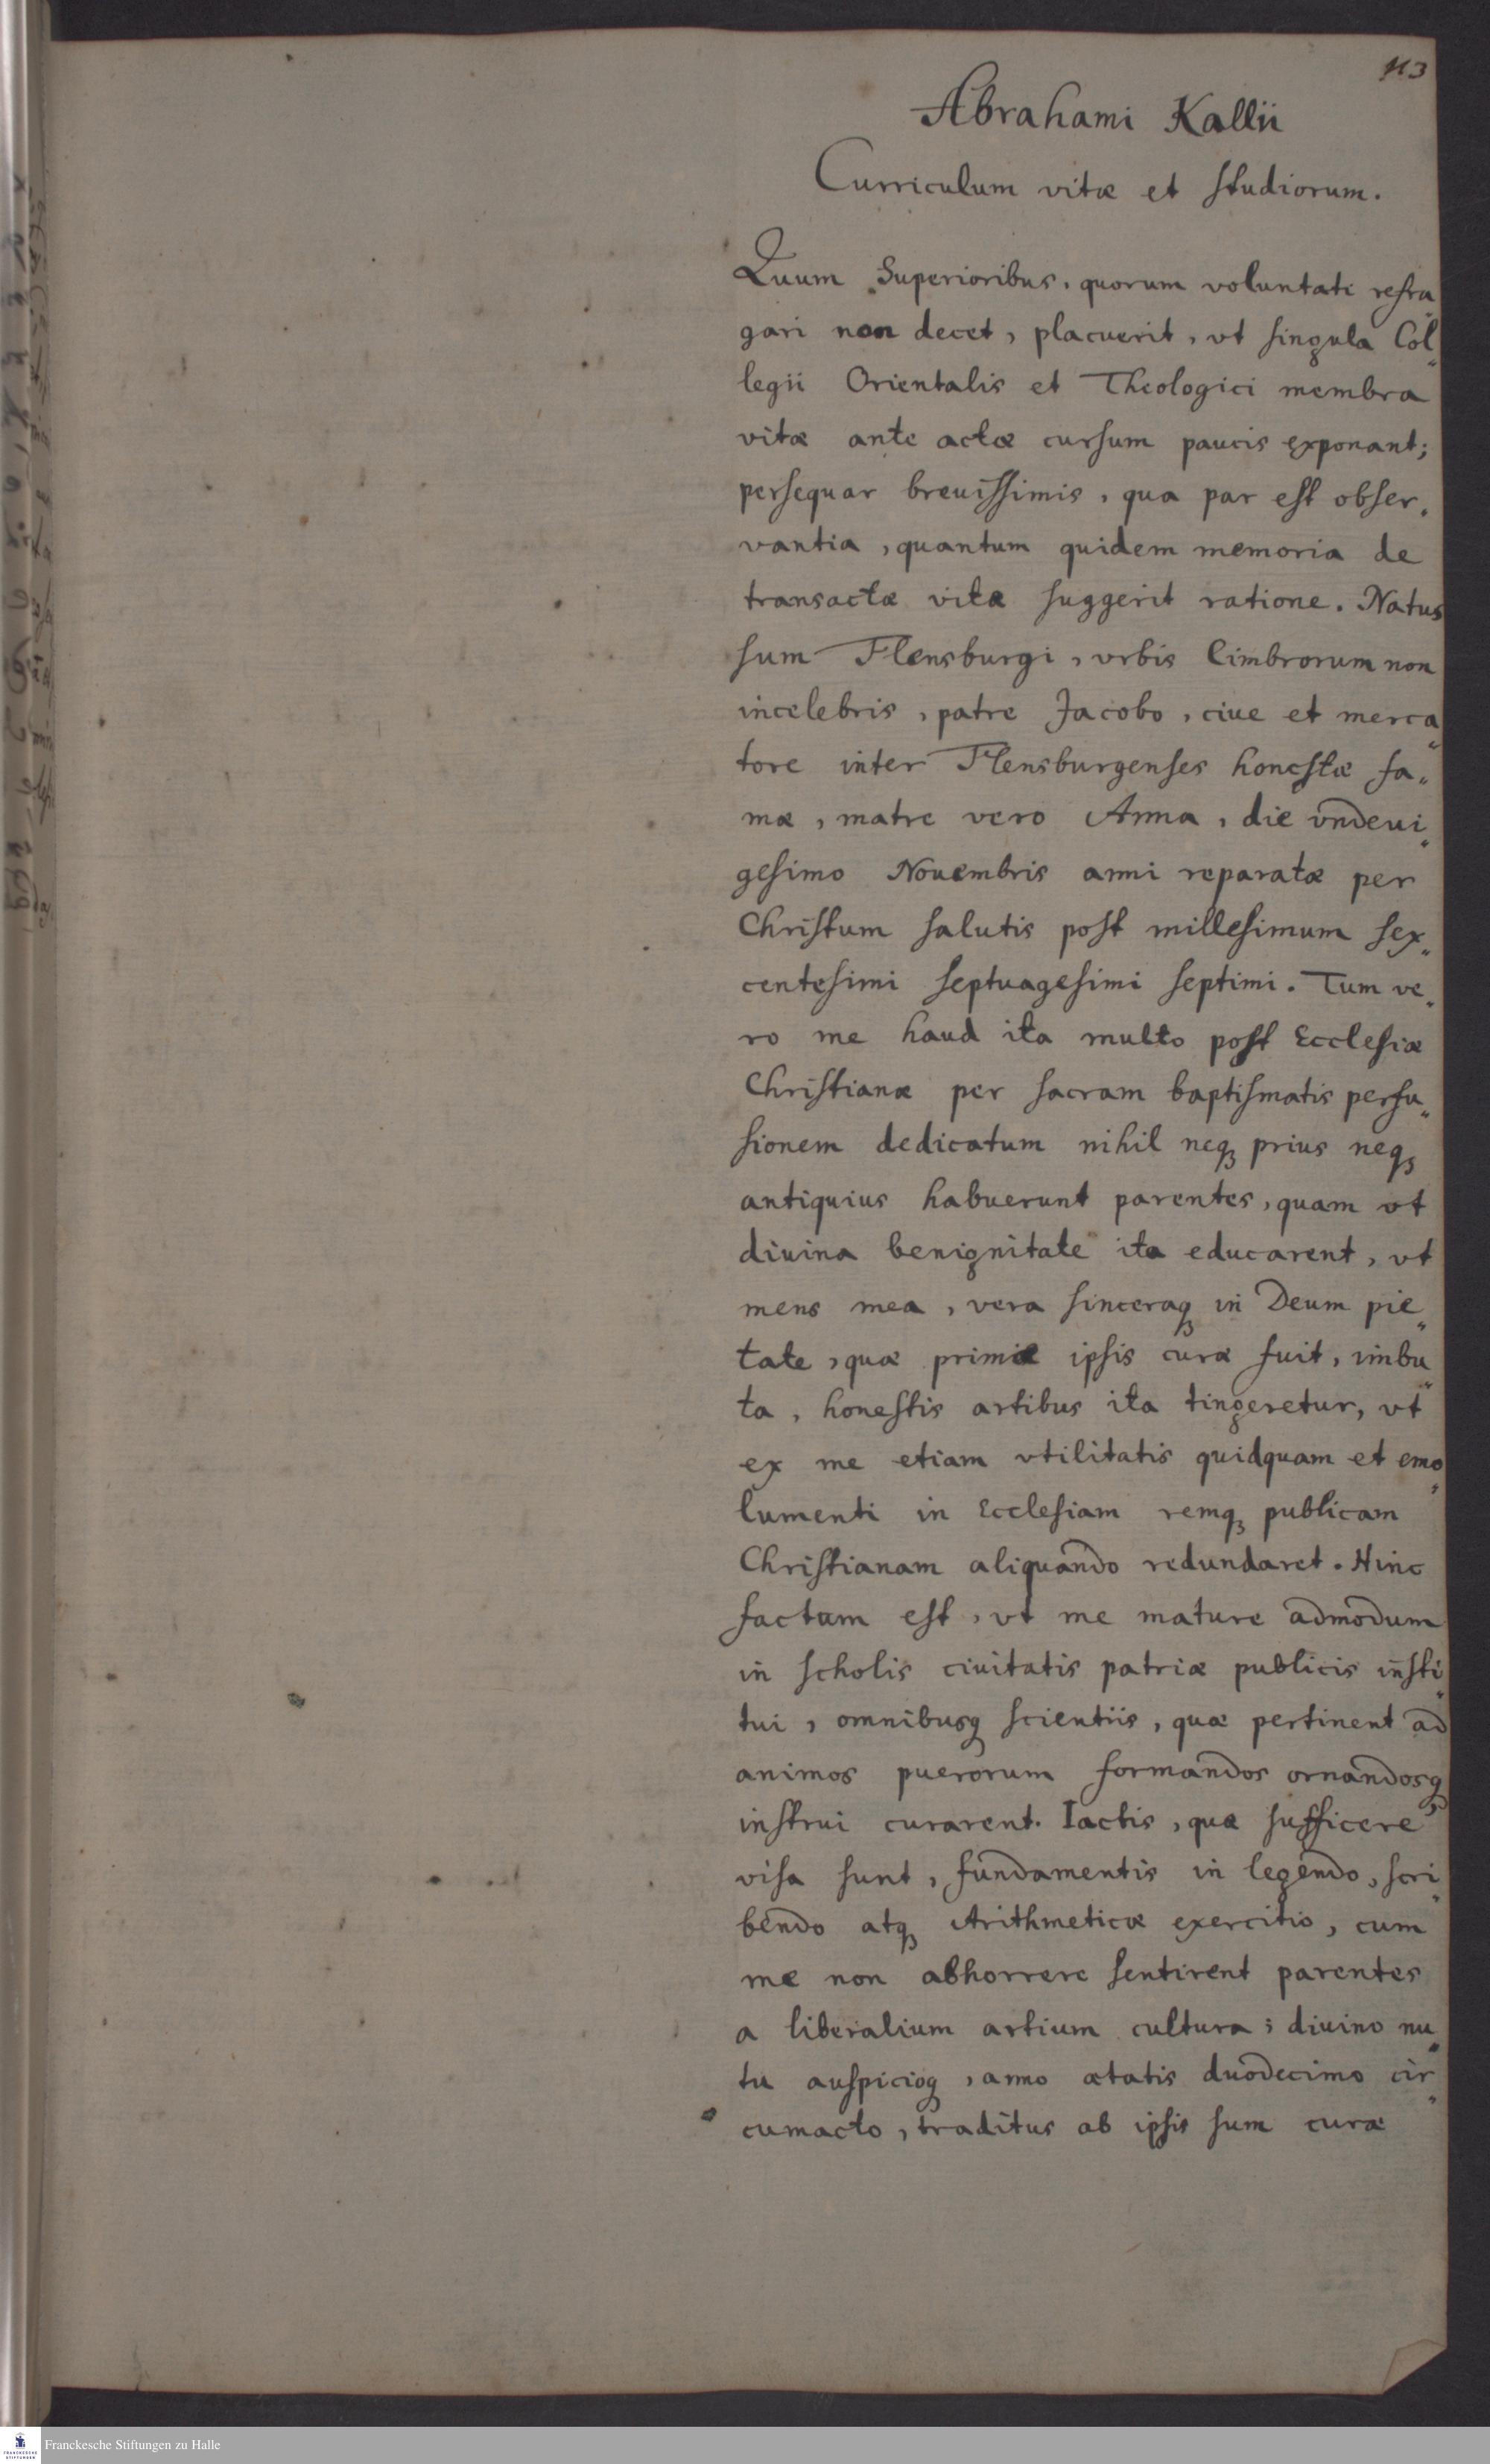 113
Abrahami Kallii
Curriculum vitæ et studiorum.
Quum Superioribus, quorum voluntati refra„
gari non decet, placuerit, vt singula Col„
legii Orientalis et Theologici membra
vitæ ante actæ cursum paucis exponant;
persequar breuissimis, qua par est obser„
vantia, quantum quidem memoria de
transactæ vitæ suggerit ratione. Natus
sum Flensburgi, vrbis Cimbrorum non
incelebris, patre Jacobo, ciue et merca„
tore inter Flensburgenses honestæ fa„
mæ, matre vero Anna, die vndeui„
gesimo Nouembris anni reparatæ per
Christum salutis post millesimum sex„
centesimi septuagesimi septimi. Tum ve„
ro me haud ita multo post Ecclesiæ
Christianæ per sacram baptismatis perfu„
sionem dedicatum nihil neqꝫ prius neqꝫ
antiquius habuerunt parentes, quam vt
diuina benignitate ita educarent, vt
mens mea, vera sinceraqꝫ in Deum pie„
tate, quæ primæ ipsis curæ fuit, imbu„
ta, honestis artibus ita tingeretur, vt
ex me etiam vtilitatis quidquam et emo„
lumenti in Ecclesiam remqꝫ publicam
Christianam aliquando redundaret. Hinc
factum est, vt me mature admodum
in scholis ciuitatis patriæ publicis insti„
tui, omnibusqꝫ scientiis, quæ pertinent ad
animos puerorum formandos ornandosqꝫ
instrui curarent. Iactis, quæ sufficere
visa sunt, fundamentis in legendo, scri„
bendo atqꝫ Arithmeticæ exercitio, cum
me non abhorrere sentirent parentes
a liberalium artium cultura; diuino nu„
tu auspicioqꝫ, anno ætatis duodecimo cir„
cumacto, traditus ab ipsis sum curæ
Franckesche Stiftungen zu Halle